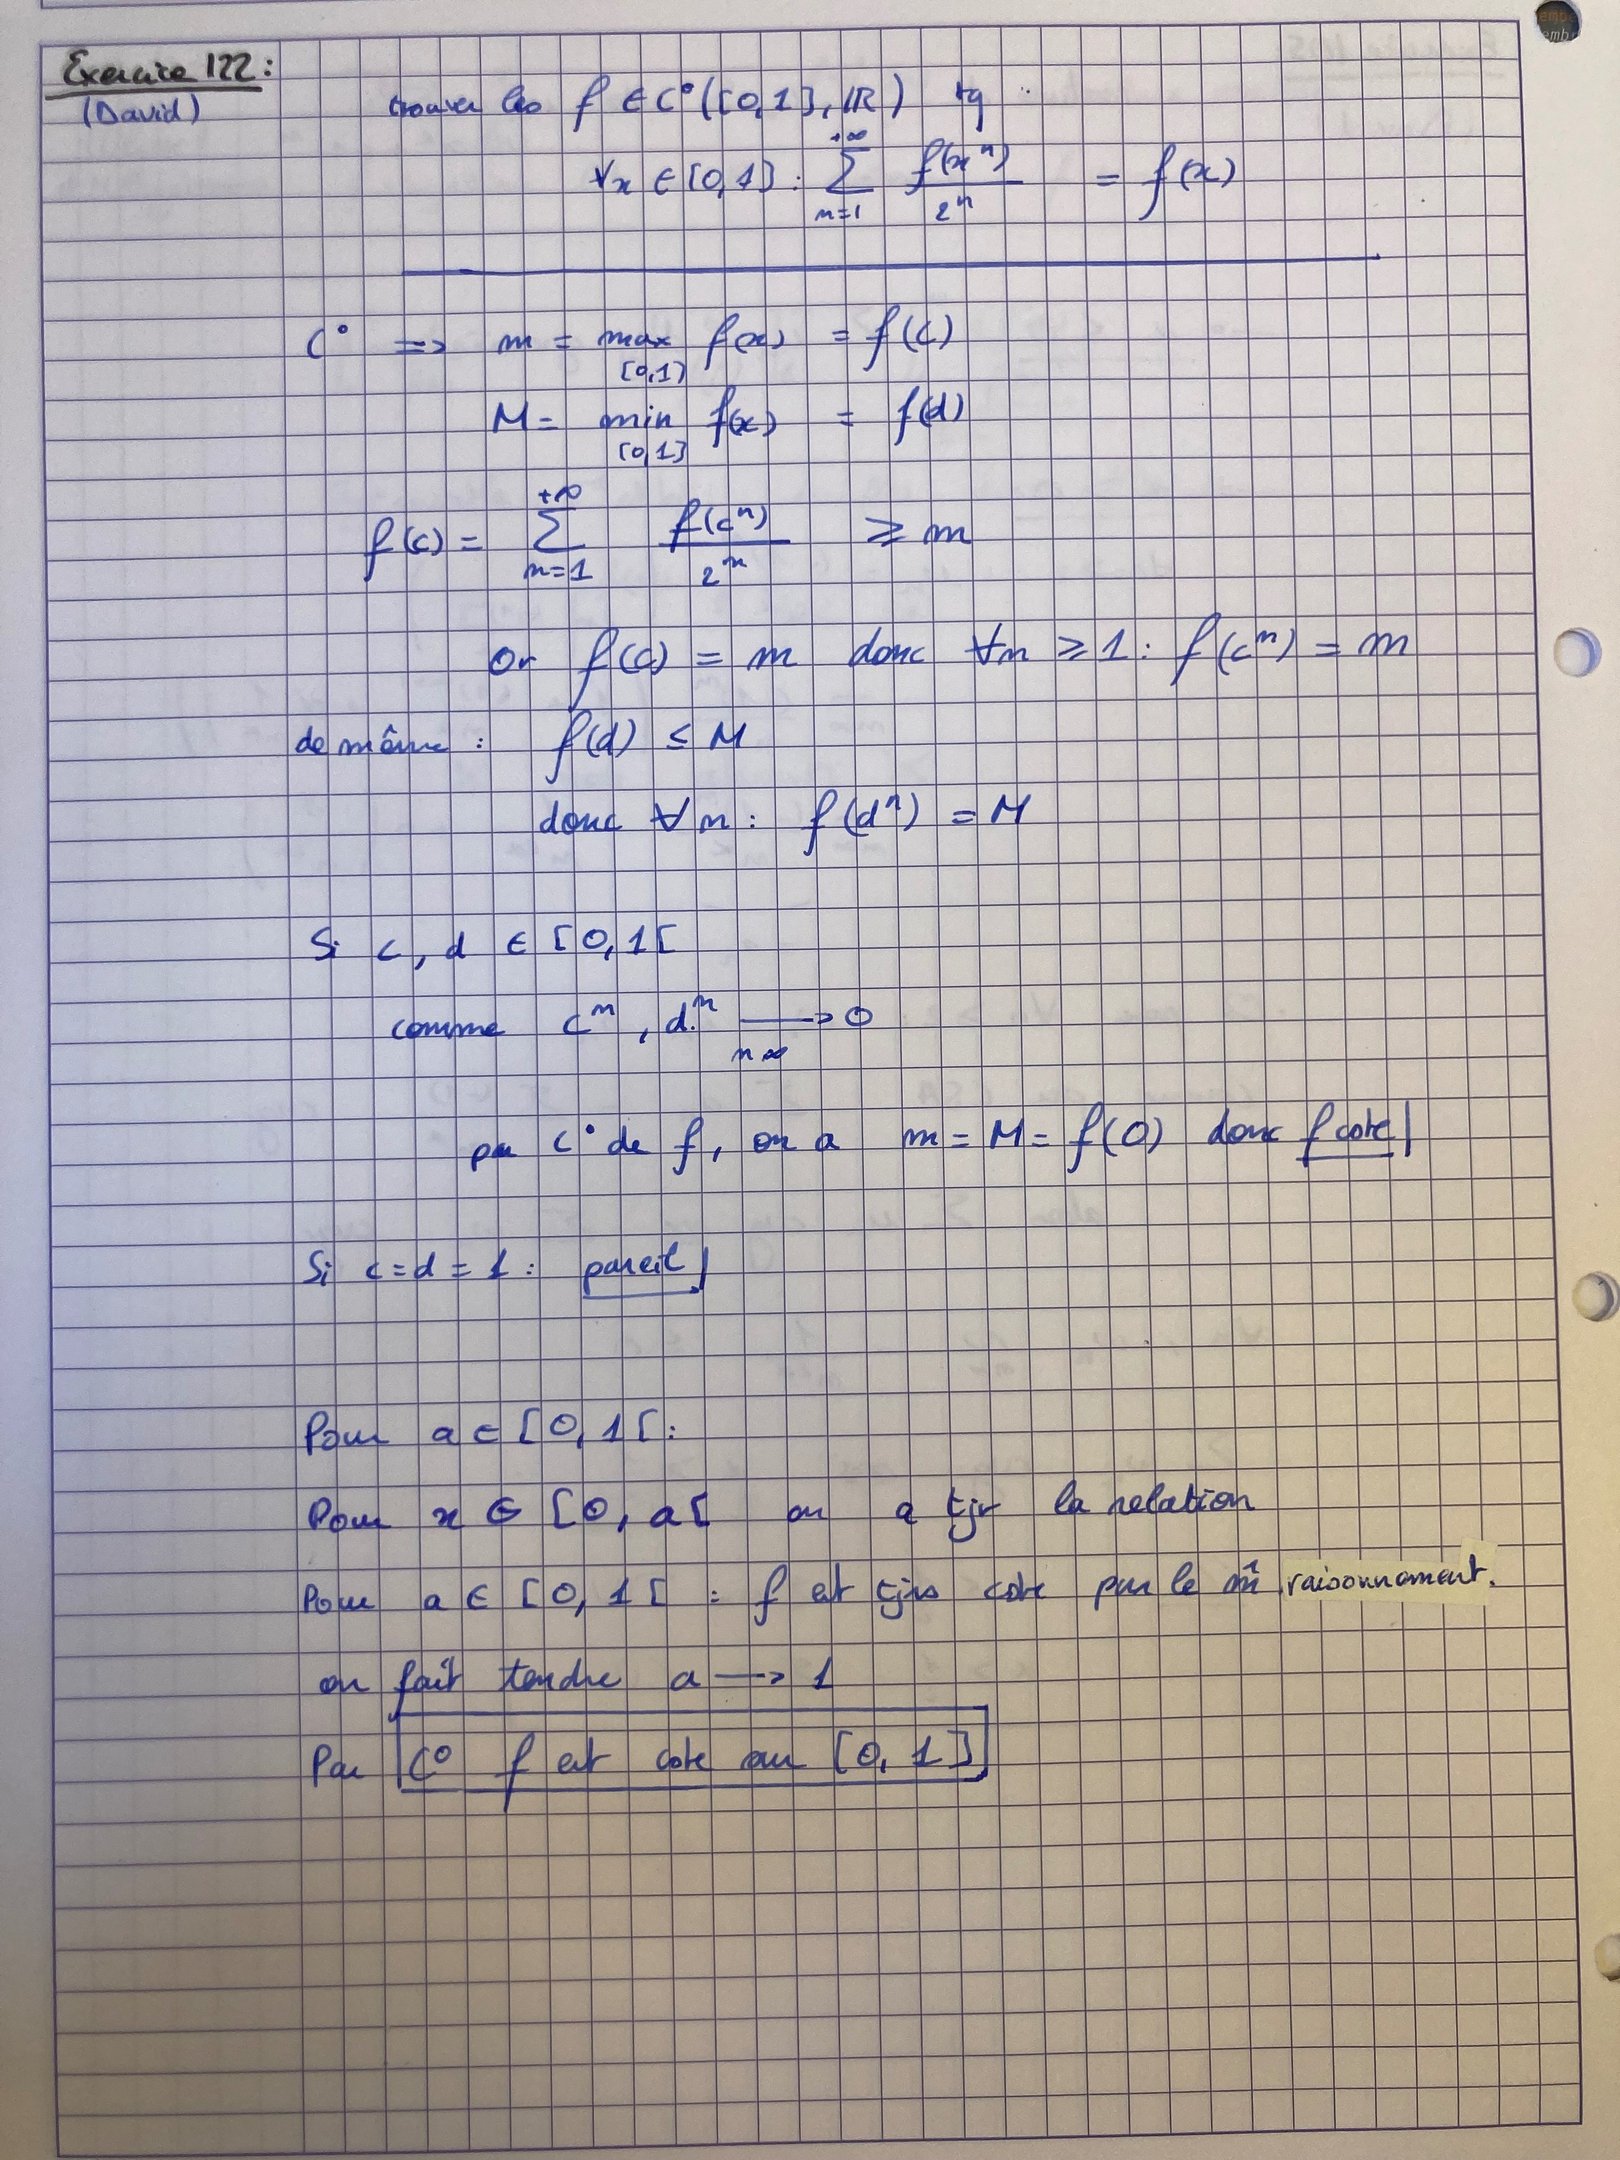 Exercice 122 :
(David)
trouver les f ∈ C°([0,1], IR) tq
∀x ∈ [0,1] : +∞ Σ n=1 f(x^n) / 2^n = f(x)
C° => m = max [0,1] f(x) = f(c)
M = min [0,1] f(x) = f(d)
f(c) = +∞ Σ n=1 f(c^n) / 2^n ≥ m
Or f(c) = m donc ∀n ≥ 1 : f(c^n) = m
de même : f(d) ≤ M
donc ∀n : f(d^n) = M
Si c, d ∈ [0,1[
comme c^n, d^n → 0 n∞
par C° de f, on a m = M = f(0) donc f cste
Si c = d = 1 : pareil
Pour a ∈ [0,1[ :
Pour x ∈ [0, a[ on a tjr la relation
Pour a ∈ [0,1[ : f est tjrs cste par le m̂ raisonnement.
on fait tendre a → 1
Par C° f est cste sur [0,1]